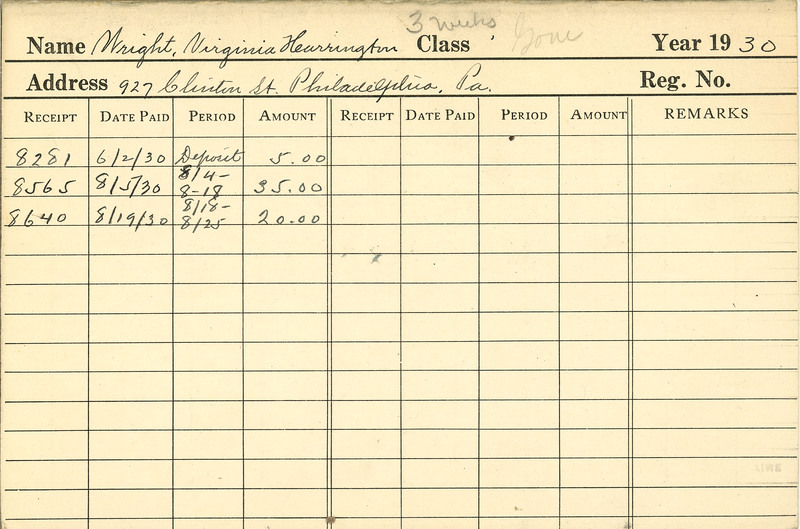 Name Wright, Virginia Hearrington Class 3 weeks Gone Year 19 30
Address 927 Clinton St. Philadelphia, Pa. Reg. No.
RECEIPT DATE PAID PERIOD AMOUNT RECEIPT DATE PAID PERIOD AMOUNT REMARKS
8281 6/2/30 Deposit 5.00
8565 8/5/30 8/4-8-18 35.00
8640 8/19/30 8/18-8/25 20.00